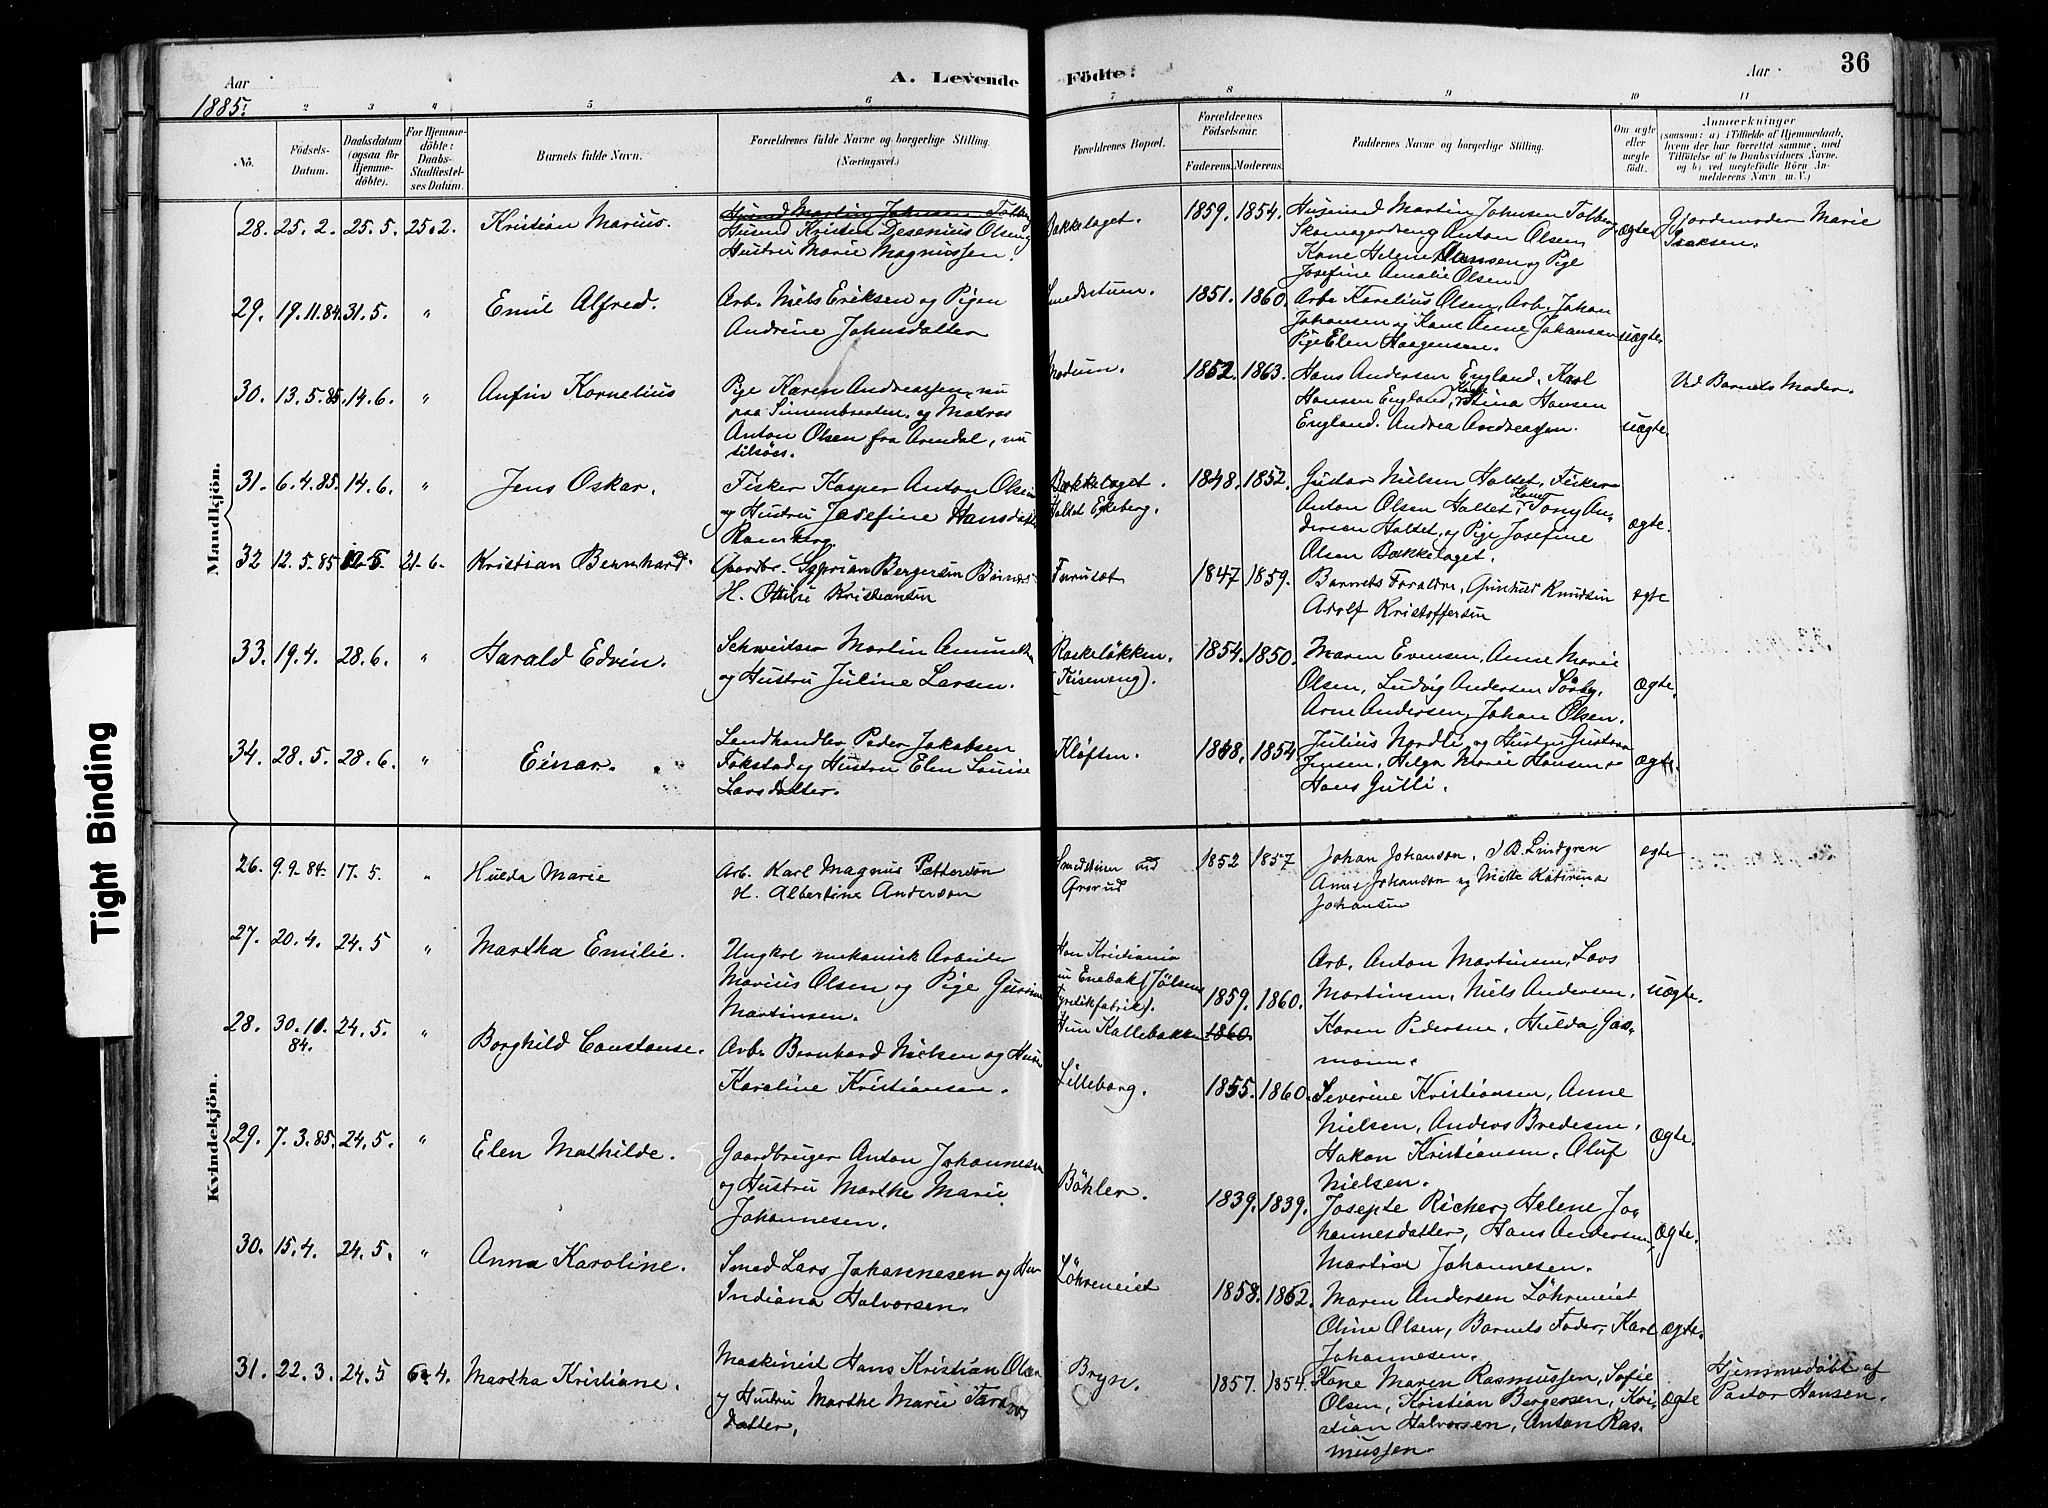 Aar
1885.
A. Levende
Födte.
Aar
36
2 3 4 5 6 7 8 9 10 11
No.
Födsels-
Datum.
Daabsdatum
(ogsaa for
Hjemme-
döbte).
For Hjemme-
döbte:
Daabs-
Stadfæstel-
ses Datum.
Barnets fulde Navn.
Forældrenes fulde Navne og borgerlige Stilling.
(Næringsvei.)
Forældrenes Bopæl.
Forældrenes
Födselsaar.
Faderens. Moderens.
Faddernes Navne og borgerlige Stilling.
Om ægte
eller
uægte
födt.
Anmærkninger
(saasom: a) i Tilfælde af Hjemmedaab,
hvem der har forrettet samme, med
Tilföielse af to Daabsvidners Navne,
og b) ved uægtefödte Börn An-
melderens Navn m. V.)
Mandkjön.
28. 25. 2. 25. 5. 25. 2. Kristian Marius.
Husmd Martin Johnsen Tolberg
Husmd Kristen Desenius Olsen og
Hustru Marie Magnussen.
Bækkelaget. 1859. 1854.
Husmand Martin Johnsen Tolberg,
Skomagerdreng Anton Olsen,
Kone Helene Hansen og Pige
Josefine Amalie Olsen
ægte
Gjordemoder Marie
Isaksen.
29. 19. 11. 84. 31. 5. " Emil Alfred.
Arb. Niels Eriksen og Pigen
Andrine Johnsdatter
Smedstuen. 1851. 1860.
Arb. Karelius Olsen, Arb. Johan
Johansen og Kone Anne Johansen
Pige Elen Haagensen.
uægte
30. 13. 5. 85. 14. 6. " Anfin Kornelius
Pige Karen Andreassen, nu
paa Simensbraaten, og Matros
Anton Olsen fra Arendal, nu
tilsöes.
Modum. 1852. 1863.
Hans Andersen England, Karl
Hansen England, Kone Stina Hansen
England. Andrea Andreassen.
uægte.
Ved Barnets Moder.
31. 6. 4. 85. 14. 6. " Jens Oskar.
Fisker Kasper Anton Olsen
og Hustru Josefine Hansdatter
Ramberg
Bækkelaget.
Holtet Ekeberg.
1848. 1852.
Gustav Nielsen Holtet, Fisker
Anton Olsen Holtet, Kone Tony An-
dersen Holtet, og Pige Josefine
Olsen Bækkelaget.
ægte.
32 12. 5. 85 21. 6. Kristian Bernhard.
Gaardbr. Syprian Bergersen
H. Otilie Kristiansen
Furuset 1847 1859.
Barnets Forældre, Gunhild Knudsen
Adolf Kristoffersen
ægte
33. 19. 4. 28. 6. " Harald Edvin.
Schweitser Martin Amundsen
og Hustru Juline Larsen.
Raskeløkken.
1854. 1850.
Maren Evensen, Anne Marie
Olsen, Ludvig Andersen Sörby,
Arne Andersen, Johan Olsen.
ægte.
34. 28. 5. 28. 6. " Einar.
Landhandler Peder Jakobsen
Fokstad og Hustru Elen Louise
Larsdatter.
Kløften. 1848. 1854.
Julius Nordli og Hustru Gustava
Jensen, Helga Marie Hansen
Hans Gulli.
ægte.
Kvindekjön.
26. 9. 9. 84. 17. 5. " Hulda Marie
Arb. Karl Magnus Petterson
H. Albertine Anderson
Smedstuen ved
Grorud
1852 1857
Johan Johanson, J. B. Lindgren
Anna Johanson og Mette Katerina
Johansen
ægte
27. 20. 4. 24. 5 " Martha Emilie.
Ungkrl mekanisk Arbeider
Marius Olsen og Pige Gurine
Martinsen.
Han Kristiania
nu Enebak (Jölsens
Fyrstikfabrik).
Hun Kallebakken
1859. 1860.
1860.
Arb. Anton Martinsen, Lars
Martinsen, Niels Andersen,
Karen Pedersen, Hulda Gas-
mann.
uægte.
28. 30. 10.
84. 24. 5. " Borghild Constanse.
Arb. Bernhard Nielsen og Hustru
Karoline Kristiansen.
Lilleborg. 1855. 1860.
Severine Kristiansen, Anne
Nielsen, Anders Bredesen,
Hakon Kristiansen, Oluf
Nielsen.
Ægte.
29. 7. 3. 85. 24. 5. " Elen Mathilde.
Gaardbruger Anton Johannesen
og Hustru Marthe Marie
Johannesen.
Böhler. 1839. 1839.
Josepte Richer, Helene Jo-
hannesdatter, Hans Andersen,
Martine Johannesen.
Ægte.
30. 15. 4. 24. 5. " Anna Karoline.
Smed Lars Johannesen og Hu
Indiana Halvorsen.
Löhreneiet
1858. 1862.
Maren Andersen Löhreneiet
Oline Olsen, Barnets Fader, Karl
Johannesen.
ægte.
31. 22. 3. 24. 5 6. 4. Martha Kristiane.
Maskinist Hans Kristian Olsen
og Hustru Marthe Marie
datter.
Bryn. 1857. 1854.
Kone Maren Rasmussen, Sofie
Olsen, Kristian Bergersen, Kri-
stian Halvorsen, Anton Ras-
mussen.
ægte
Hjemmedöbt af
Pastor Hansen.
Tight Binding